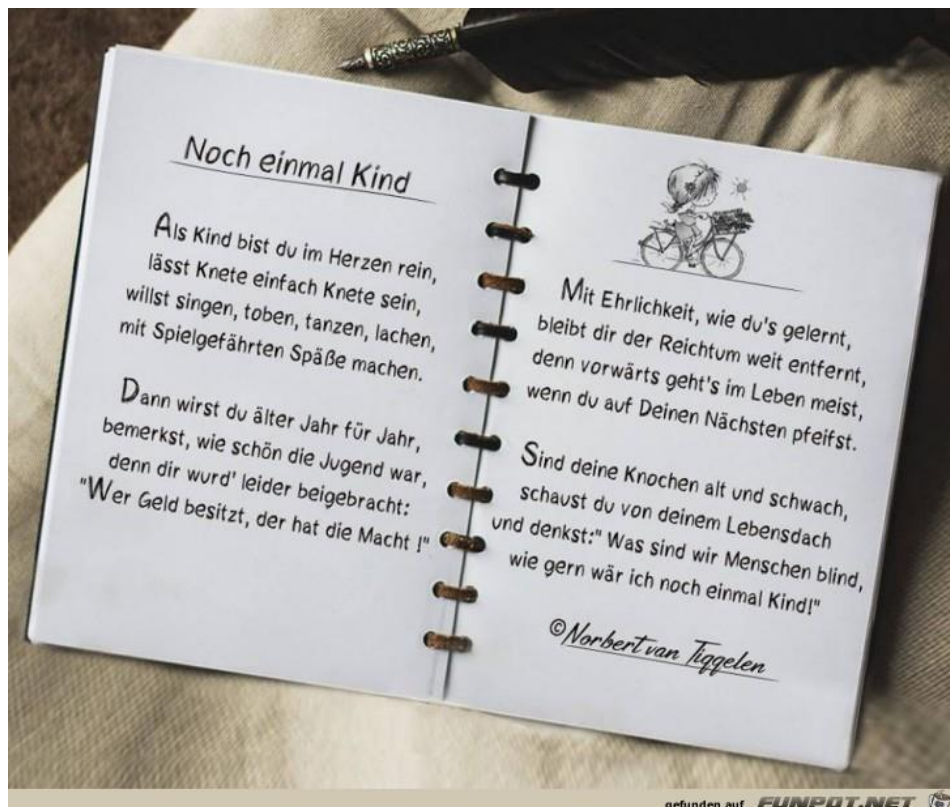 Noch einmal Kind
Als Kind bist du im Herzen rein,
lässt Knete einfach Knete sein,
willst singen, toben, tanzen, lachen,
mit Spielgefährten Späße machen.
Dann wirst du älter Jahr für Jahr,
bemerkst, wie schön die Jugend war,
denn dir wurd' leider beigebracht:
"Wer Geld besitzt, der hat die Macht !"
Mit Ehrlichkeit, wie du's gelernt,
bleibt dir der Reichtum weit entfernt,
denn vorwärts geht's im Leben meist,
wenn du auf Deinen Nächsten pfeifst.
Sind deine Knochen alt und schwach,
schaust du von deinem Lebensdach
und denkst:" Was sind wir Menschen blind,
wie gern wär ich noch einmal Kind!"
©Norbert van Tiggelen
gefunden auf FUNPOT.NET